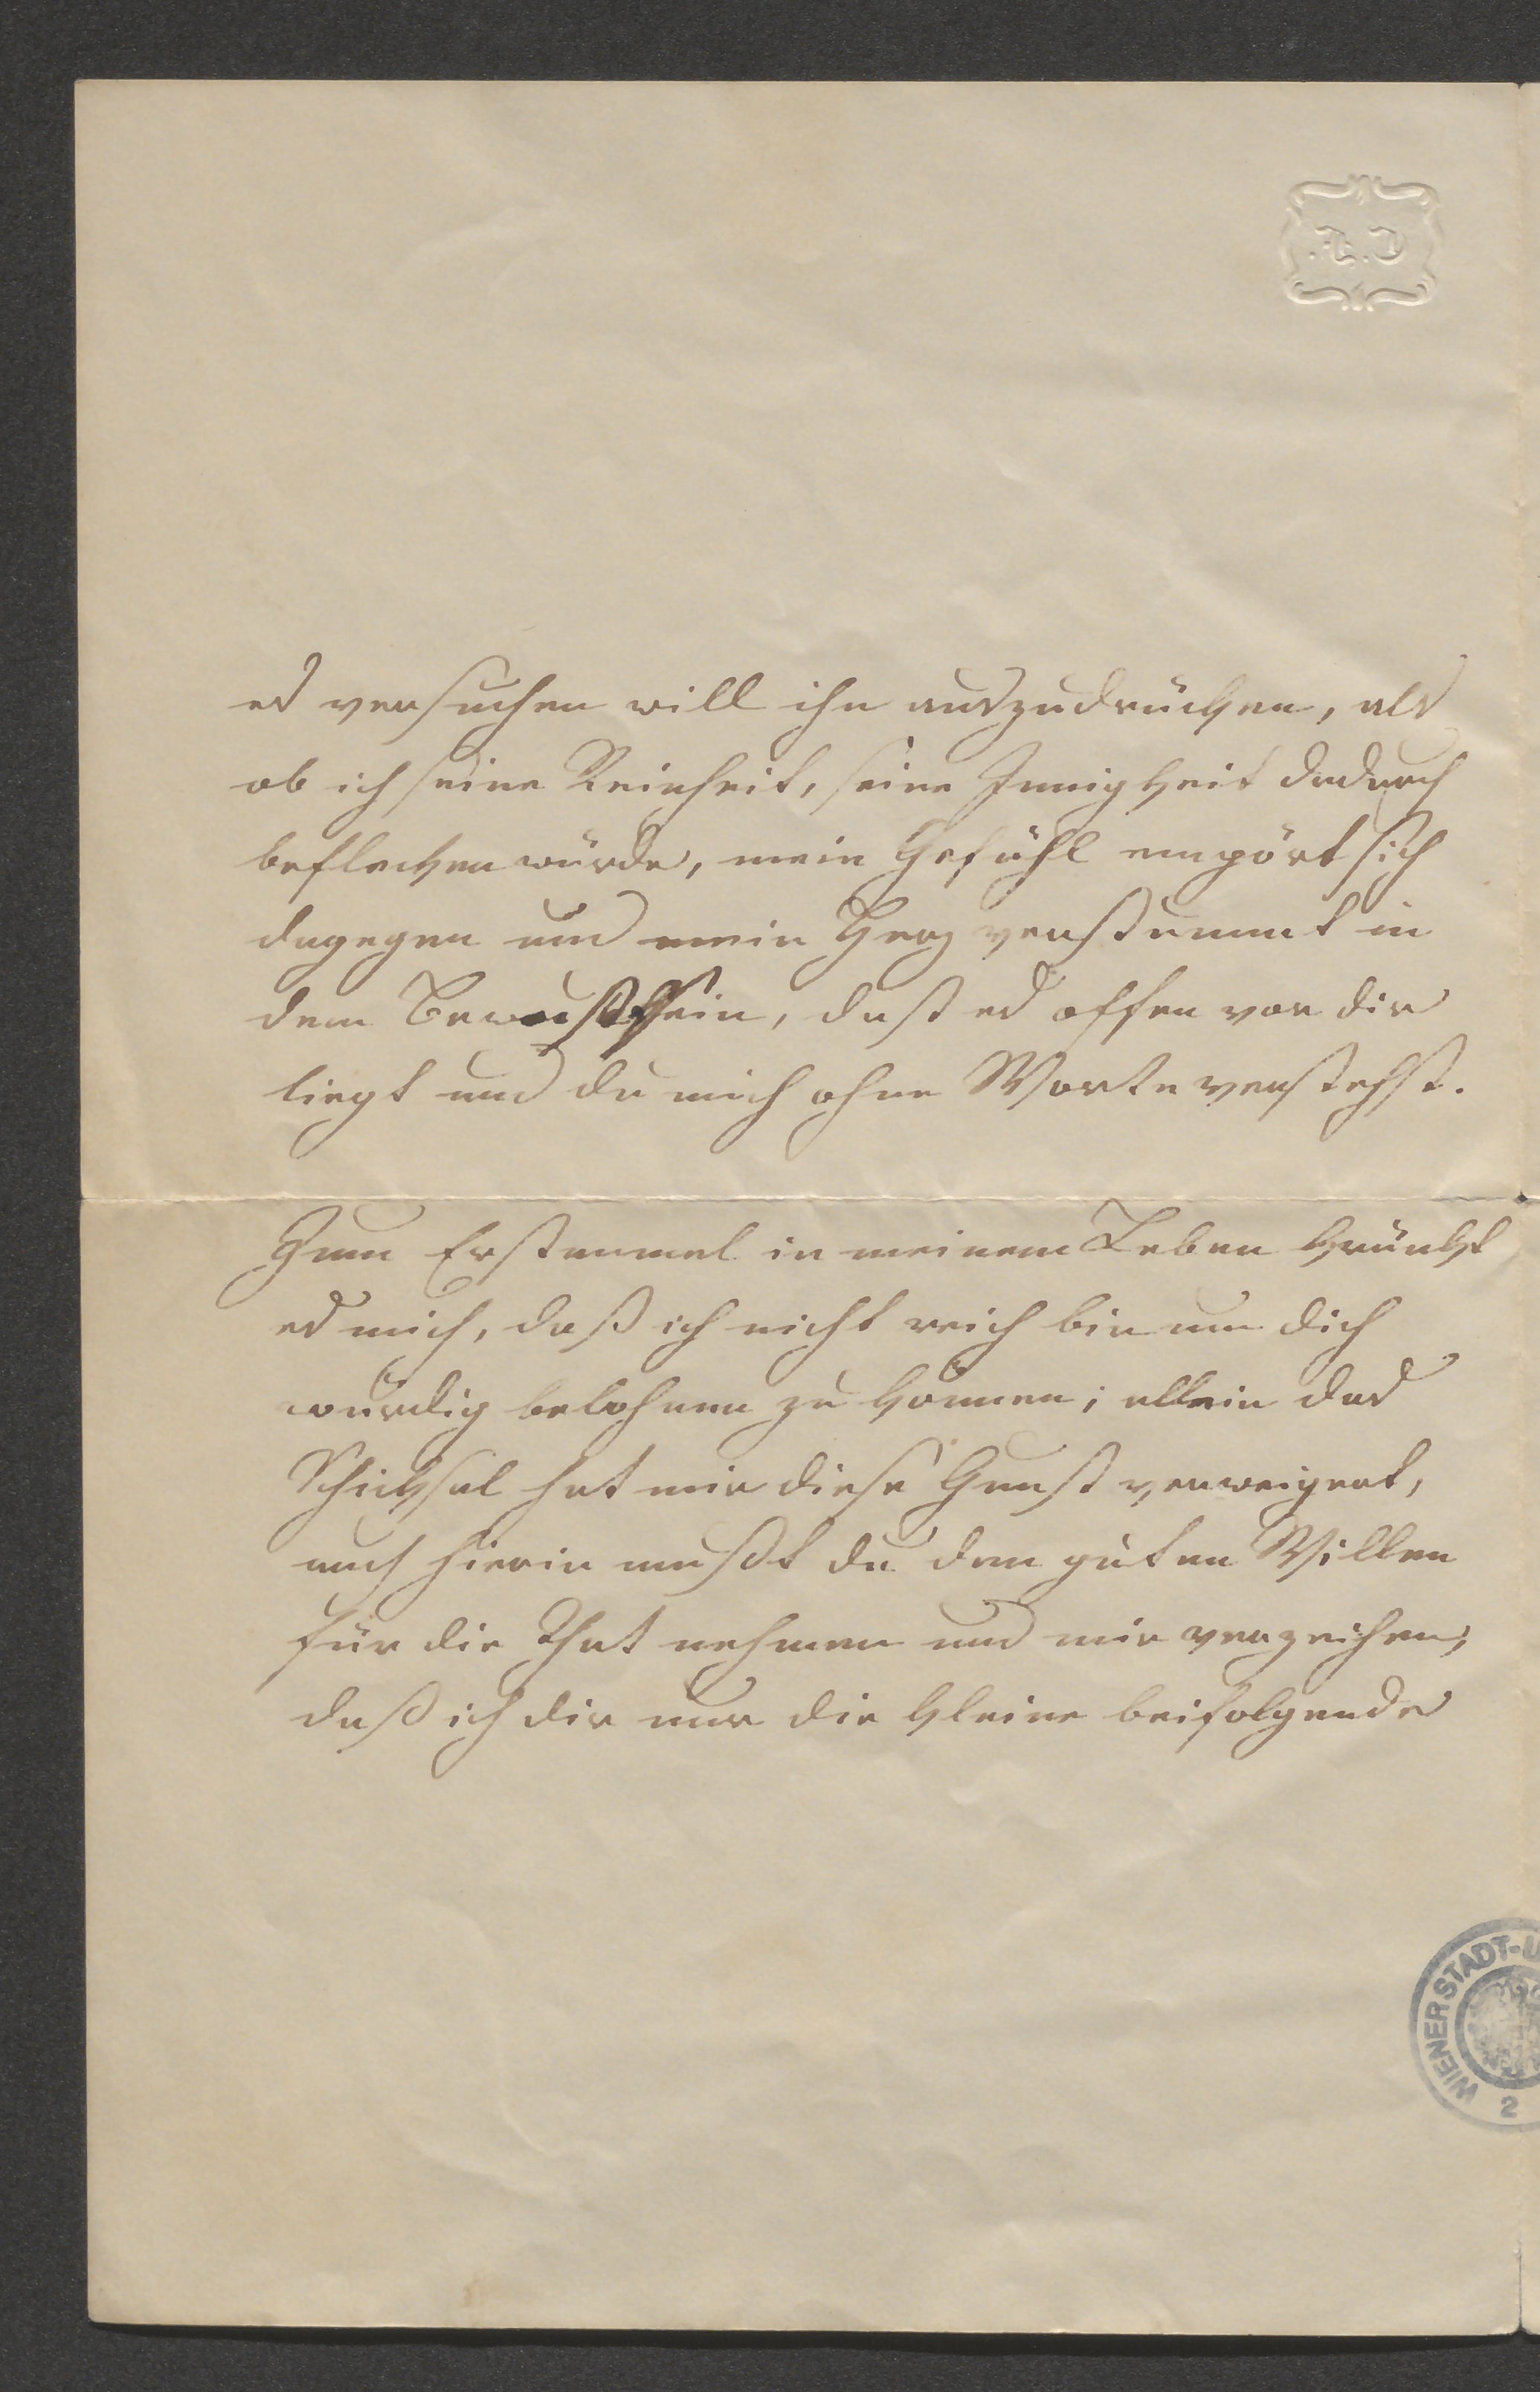 es versuchen will ihn auszudrücken, als
ob ich seine Reinheit, seine Innigkeit dadurch
beflecken würde, mein Gefühl empört sich
dagegen und mein Herz verstummt in
dem Bewußtsein, daß es offen vor dir
liegt und du mich ohne Worte verstehst.
Zum Erstenmal in meinem Leben kränkt
es mich, daß ich nicht reich bin um dich
würdig belohnen zu können; allein das
Schicksal hat mir diese Gunst verweigert,
auch hierin mußt du den guten Willen
für die That nehmen und mir verzeihen,
daß ich dir nur die kleine beifolgende
WIENER STADT-U
2